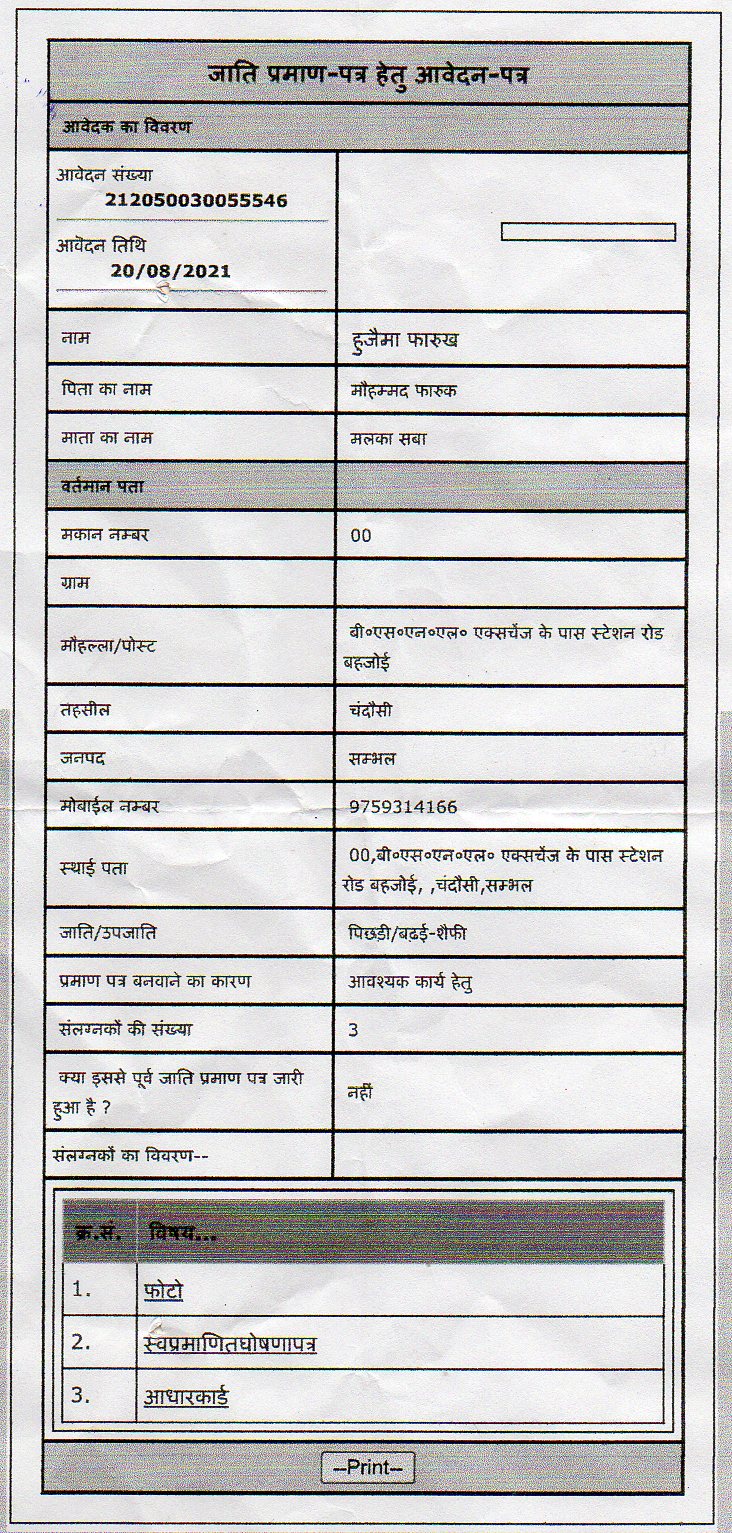 जाति प्रमाण-पत्र हेतु आवेदन-पत्र
आवेदक का विवरण
आवेदन संख्या
212050030055546
आवेदन तिथि
20/08/2021
नाम हुजैमा फारुख
पिता का नाम मौहम्मद फारुक
माता का नाम मलका सबा
वर्तमान पता
मकान नम्बर 00
ग्राम
मौहल्ला/पोस्ट बी॰एस॰एन॰एल॰ एक्सचेंज के पास स्टेशन रोड
बहजोई
तहसील चंदौसी
जनपद सम्भल
मोबाईल नम्बर 9759314166
स्थाई पता 00,बी॰एस॰एन॰एल॰ एक्सचेंज के पास स्टेशन
रोड बहजोई, ,चंदौसी,सम्भल
जाति/उपजाति पिछड़ी/बढई-शैफी
प्रमाण पत्र बनवाने का कारण आवश्यक कार्य हेतु
संलग्नकों की संख्या 3
क्या इससे पूर्व जाति प्रमाण पत्र जारी
हुआ है ? नहीं
संलग्नकों का विवरण--
क्र.सं. विषय...
1. फोटो
2. स्वप्रमाणितघोषणापत्र
3. आधारकार्ड
--Print--